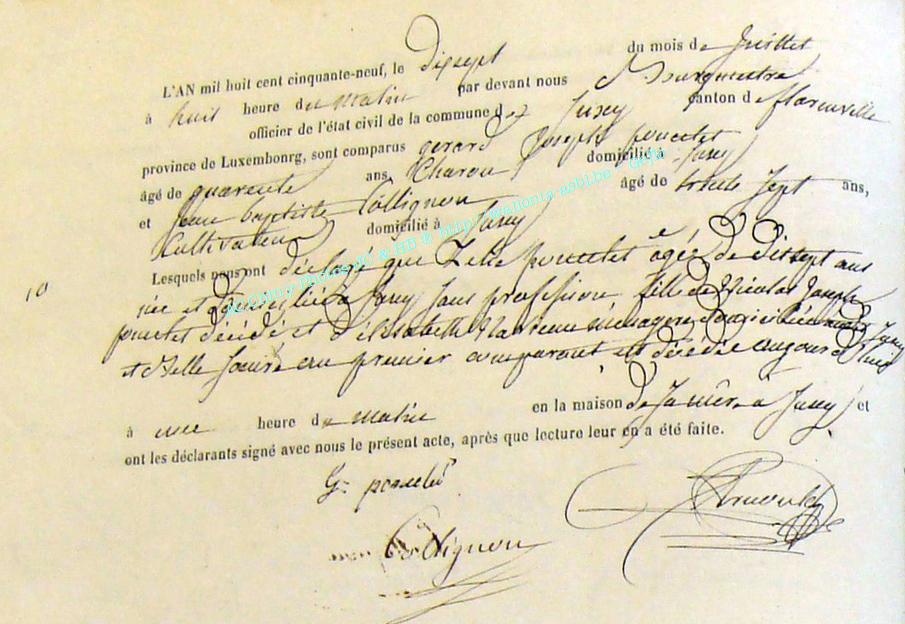 L'AN mil huit cent cinquante-neuf, le dixsept du mois de Juillet
à huit heure du matin par devant nous Bourgmestre
officier de l'état civil de la commune de Jusey canton de florenville
province de Luxembourg, sont comparus gerard Joseph poncelet
âgé de quarente ans Charon domicilié à Jusey
et Jean baptiste Collignon âgé de trente Sept ans,
Cultivateur domicilié à Jusey
Lesquels nous ont déclaré que Zelie poncelet agée de dixsept ans
10
née et domiciliée à Jusey Sans profession, fille de Nicolas Joseph
poncelet décédé et d'élisabeth ménagère domiciliée à Jusey
et Belle Soeure au premier comparant est décédée aujourd'hui
à une heure du matin en la maison de Sa mère à Jusey et
ont les déclarants signé avec nous le présent acte, après que lecture leur en a été faite.
G. poncelet
Collignon